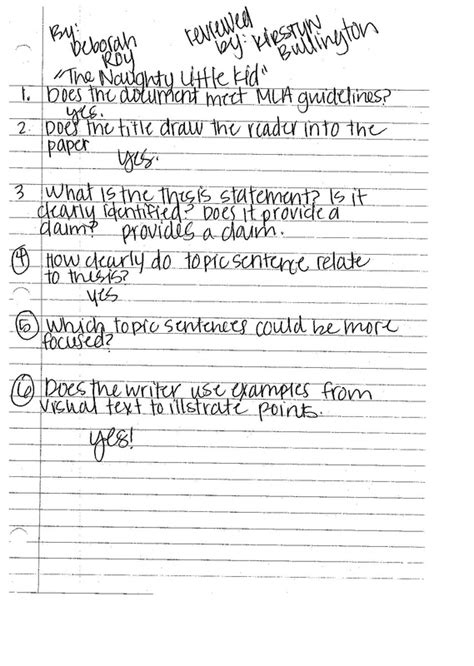 By:
Deborah
Roy
reviewed
by: Kirstyn
Bullington
"The Naughty Little Kid"
1. Does the document meet MLA guidelines?
yes.
2. Does the title draw the reader into the
paper
yes.
3 What is the thesis statement? Is it
clearly identified? Does it provide a
claim? provides a claim.
4 How clearly do topic sentence relate
to thesis?
yes
5 Which topic sentences could be more
focused?
6 Does the writer use examples from
visual text to illstrate points.
yes!